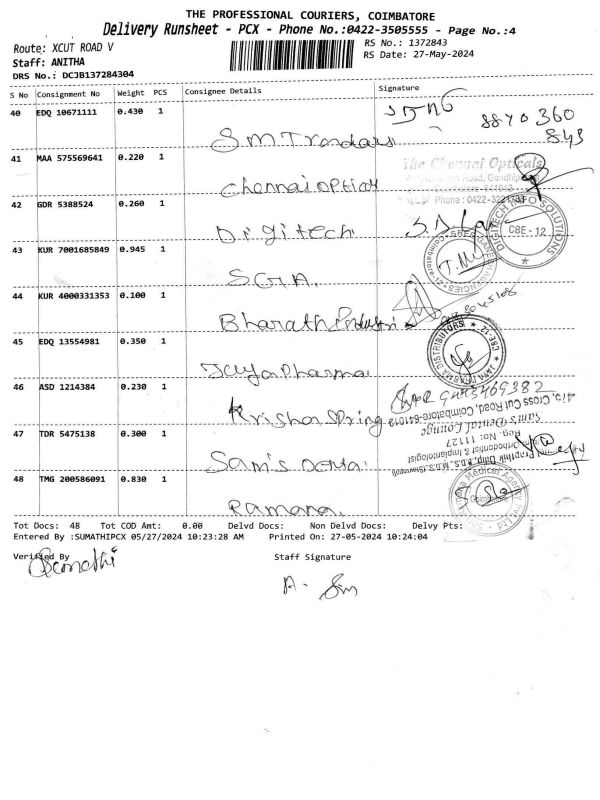 THE PROFESSIONAL COURIERS, COIMBATORE
Delivery Runsheet - PCX - Phone No.:0422-3505555 - Page No.:4
Route: XCUT ROAD V
RS No.: 1372843
Staff: ANITHA
RS Date: 27-May-2024
DRS No.: DCJB137284304
S No Consignment No Weight PCS Consignee Details Signature
40 EDQ 10671111 0.430 1
41 MAA 575569641 0.220 1
The Chennai Opticals
Chennai optical
42 GDR 5388524 0.260 1
Digitech
DIGITECH INFO SOLUTIONS
CBE - 12
43 KUR 7001685849 0.945 1
44 KUR 4000331353 0.100 1
Bharath
45 EDQ 13554981 0.350 1
Jaya pharma
CBE-12
46 ASD 1214384 0.230 1
9443469382
Krishna Spring
416, Cross Cut Road, Coimbatore-641012
Sam's Dental Lounge
Reg. No: 11127
Orthodontist & Implantologist
47 TDR 5475138 0.300 1
Sam's Dental
48 TMG 200586091 0.830 1
Medical Agency
Coimbatore
Ramana
Tot Docs: 48 Tot COD Amt: 0.00 Delvd Docs: Non Delvd Docs: Delvy Pts:
Entered By :SUMATHIPCX 05/27/2024 10:23:28 AM Printed On: 27-05-2024 10:24:04
Verified By Staff Signature
Sumathi